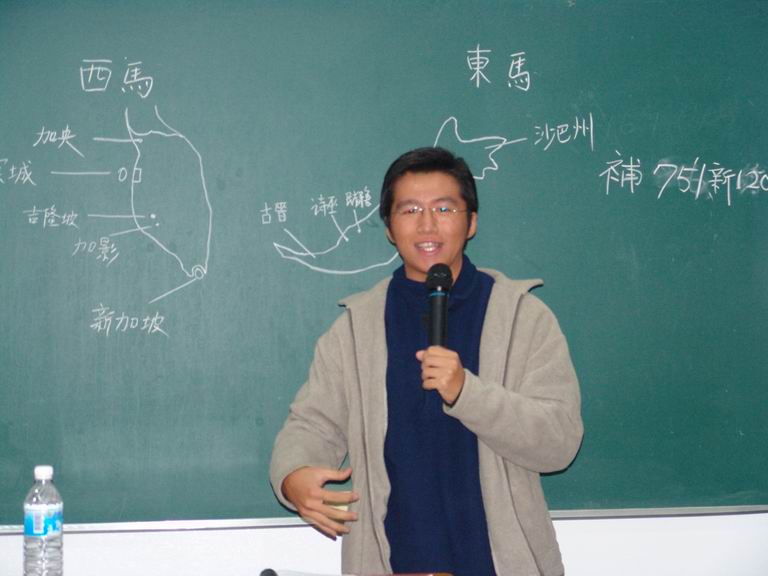 西馬
加央
城
吉隆坡
加影
新加坡
東馬
沙巴州
古晉
詩巫
補 751新120